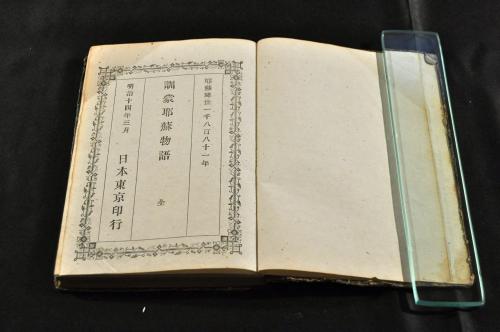 耶穌降世一千八百八十一年
訓蒙耶蘇物語 全
明治十四年三月
日本東京印行